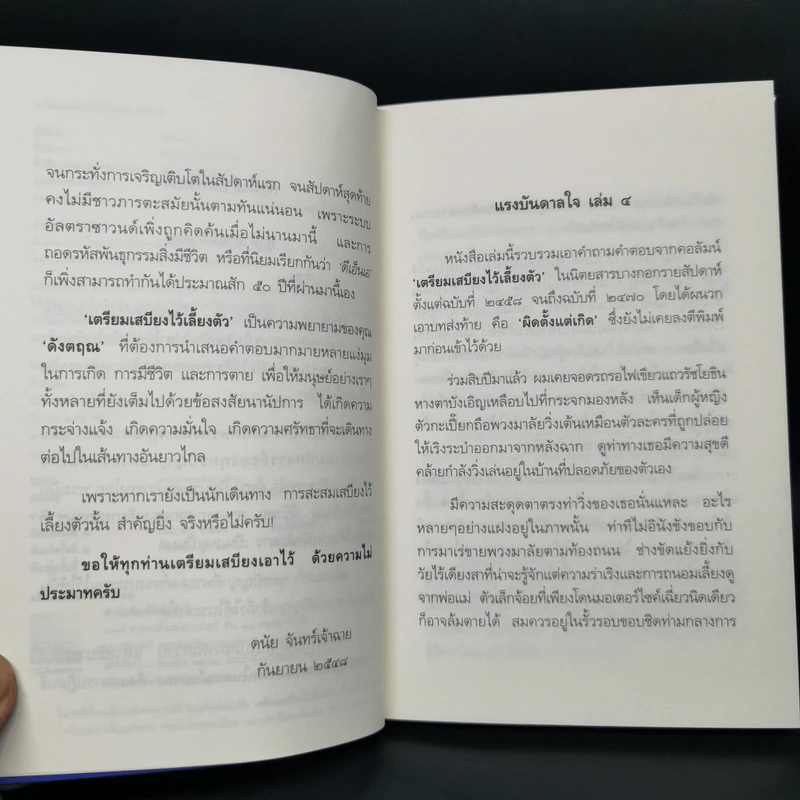 จนกระทั่งการเจริญเติบโตในสัปดาห์แรก จนสัปดาห์สุดท้าย
คงไม่มีชาวภารตะสมัยนั้นตามทันแน่นอน เพราะระบบ
อัลตราซาวนด์เพิ่งถูกคิดค้นเมื่อไม่นานมานี้ และการ
ถอดรหัสพันธุกรรมสิ่งมีชีวิต หรือที่นิยมเรียกกันว่า ‘ดีเอ็นเอ’
ก็เพิ่งสามารถทำกันได้ประมาณสัก ๕๐ ปีที่ผ่านมานี้เอง
‘เตรียมเสบียงไว้เลี้ยงตัว’ เป็นความพยายามของคุณ
‘ดังตฤณ’ ที่ต้องการนำเสนอคำตอบมากมายหลายแง่มุม
ในการเกิด การมีชีวิต และการตาย เพื่อให้มนุษย์อย่างเราๆ
ทั้งหลายที่ยังเต็มไปด้วยข้อสงสัยนานัปการ ได้เกิดความ
กระจ่างแจ้ง เกิดความมั่นใจ เกิดความศรัทธาที่จะเดินทาง
ต่อไปในเส้นทางอันยาวไกล
เพราะหากเรายังเป็นนักเดินทาง การสะสมเสบียงไว้
เลี้ยงตัวนั้น สำคัญยิ่ง จริงหรือไม่ครับ!
ขอให้ทุกท่านเตรียมเสบียงเอาไว้ ด้วยความไม่
ประมาทครับ
ดนัย จันทร์เจ้าฉาย
กันยายน ๒๕๔๘
แรงบันดาลใจ เล่ม ๔
หนังสือเล่มนี้รวบรวมเอาคำถามคำตอบจากคอลัมน์
‘เตรียมเสบียงไว้เลี้ยงตัว’ ในนิตยสารบางกอกรายสัปดาห์
ตั้งแต่ฉบับที่ ๒๔๕๘ จนถึงฉบับที่ ๒๔๗๐ โดยได้ผนวก
เอาบทส่งท้าย คือ ‘ผิดตั้งแต่เกิด’ ซึ่งยังไม่เคยลงตีพิมพ์
มาก่อนเข้าไว้ด้วย
ร่วมสิบปีมาแล้ว ผมเคยจอดรถรอไฟเขียวแถวรัชโยธิน
หางตาบังเอิญเหลือบไปที่กระจกมองหลัง เห็นเด็กผู้หญิง
ตัวกะเปี๊ยกถือพวงมาลัยวิ่งเต้นเหมือนตัวละครที่ถูกปล่อย
ให้เริงระบำออกมาจากหลังฉาก ดูท่าทางเธอมีความสุขดี
คล้ายกำลังวิ่งเล่นอยู่ในบ้านที่ปลอดภัยของตัวเอง
มีความสะดุดตาตรงท่าวิ่งของเธอนั่นแหละ อะไร
หลายๆอย่างแฝงอยู่ในภาพนั้น ท่าทีไม่อินังขังขอบกับ
การมาเร่ขายพวงมาลัยตามท้องถนน ช่างขัดแย้งยิ่งกับ
วัยไร้เดียงสาที่น่าจะรู้จักแต่ความร่าเริงและการถนอมเลี้ยงดู
จากพ่อแม่ ตัวเล็กจ้อยที่เพียงโดนมอเตอร์ไซค์เฉี่ยวนิดเดียว
ก็อาจล้มตายได้ สมควรอยู่ในรั้วรอบขอบชิดท่ามกลางการ